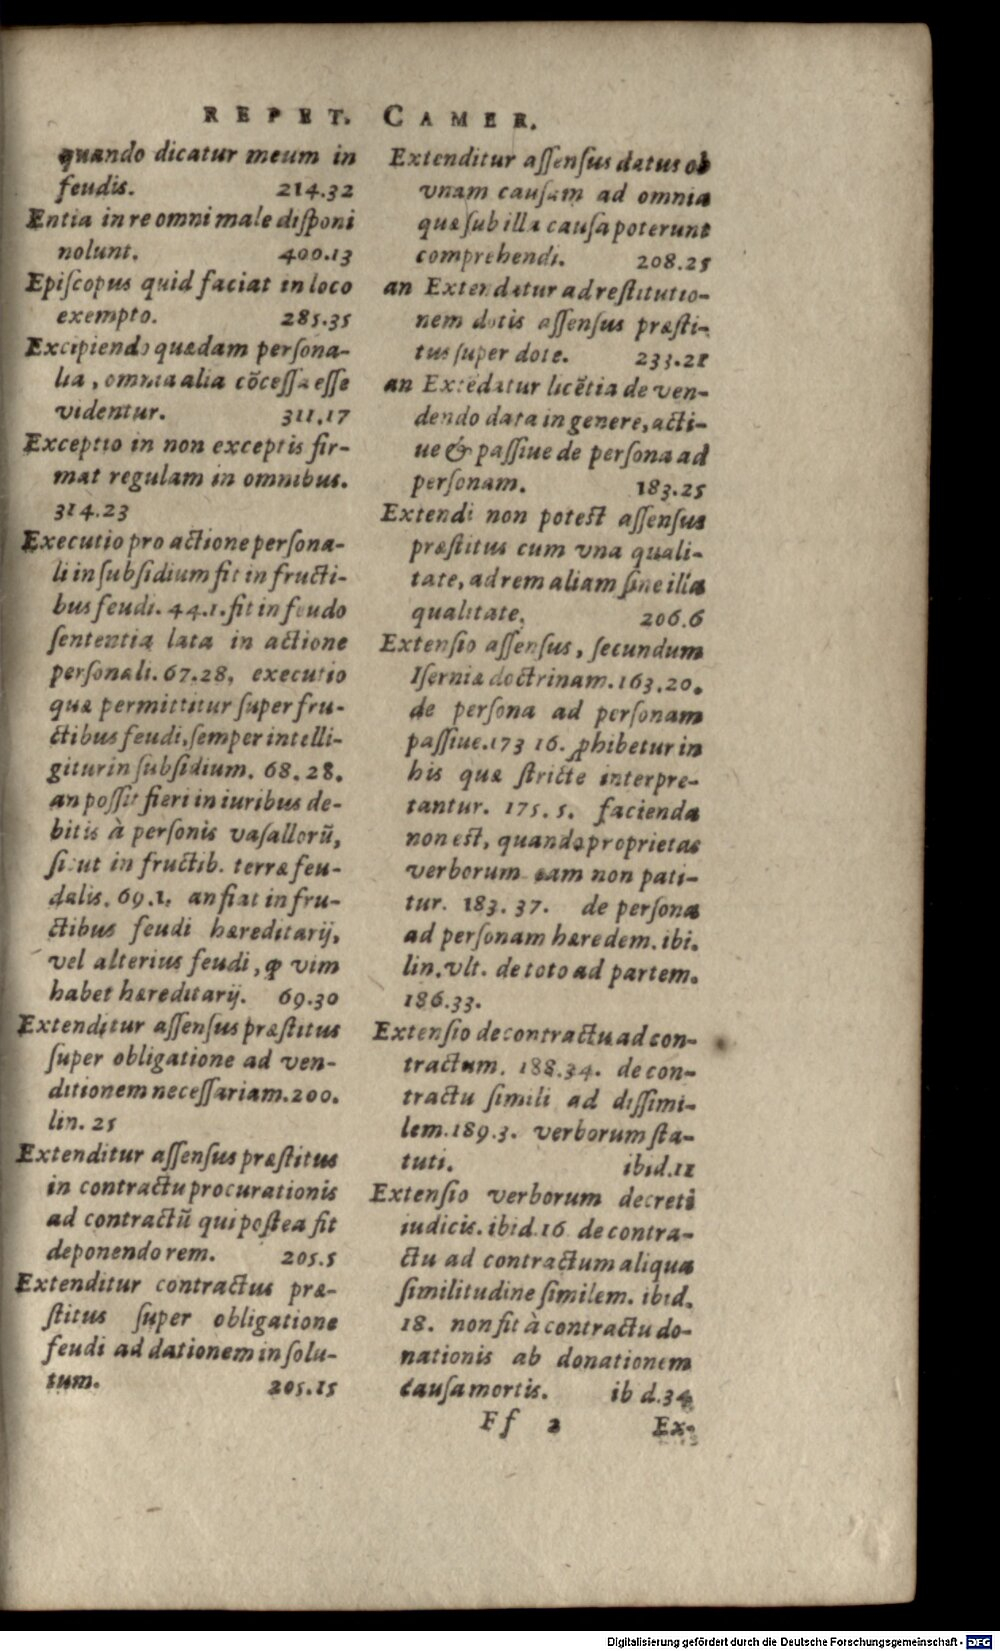 REPET. CAMER.
quando dicatur meum in
feudis. 214.32
Entia in re omni male diſponi
nolunt. 400.13
Epiſcopus quid faciat in loco
exempto. 285.35
Excipiendo quædam perſona-
lia, omnia alia cõceſſa eſſe
videntur. 311.17
Exceptio in non exceptis fir-
mat regulam in omnibus.
314.23
Executio pro actione perſona-
li in ſubſidium fit in fructi-
bus feudi. 44.1. fit in feudo
ſententia lata in actione
perſonali. 67.28. executio
quæ permittitur ſuper fru-
ctibus feudi, ſemper intelli-
gitur in ſubſidium. 68.28.
an poſſit fieri in iuribus de-
bitis à perſonis vaſallorũ,
ſicut in fructib. terræ feu-
dalis. 69.1. an fiat in fru-
ctibus feudi hæreditarij,
vel alterius feudi, ꝙ vim
habet hæreditarij. 69.30
Extenditur aſſenſus præſtitus
ſuper obligatione ad ven-
ditionem neceſſariam. 200.
lin. 25
Extenditur aſſenſus præſtitus
in contractu procurationis
ad contractũ qui poſtea fit
deponendo rem. 205.5
Extenditur contractus præ-
ſtitus ſuper obligatione
feudi ad dationem in ſolu-
tum. 205.15
Extenditur aſſenſus datus ob
vnam cauſam ad omnia
quæ ſub illa cauſa poterunt
comprehendi. 208.25
an Extendatur ad reſtitutio-
nem dotis aſſenſus præſti-
tus ſuper dote. 233.21
an Extẽdatur licẽtia de ven-
dendo data in genere, acti-
ue & paſſiue de perſona ad
perſonam. 183.25
Extendi non poteſt aſſenſus
præſtitus cum vna quali-
tate, ad rem aliam ſine illa
qualitate. 206.6
Extenſio aſſenſus, ſecundum
Iſerniæ doctrinam. 163.20.
de perſona ad perſonam
paſſiue. 173 16. ꝓhibetur in
his quæ ſtricte interpre-
tantur. 175.5. facienda
non eſt, quando proprietas
verborum eam non pati-
tur. 183.37. de perſona
ad perſonam hæredem. ibi.
lin. vlt. de toto ad partem.
186.33.
Extenſio de contractu ad con-
tractum. 188.34. de con-
tractu ſimili ad diſſimi-
lem. 189.3. verborum ſta-
tuti. ibid. 11
Extenſio verborum decreti
iudicis. ibid. 16 de contra-
ctu ad contractum aliqua
ſimilitudine ſimilem. ibid.
18. non fit à contractu do-
nationis ab donationem
cauſa mortis. ib d. 34
Ff 2 Ex-
Digitalisierung gefördert durch die Deutsche Forschungsgemeinschaft - DFG